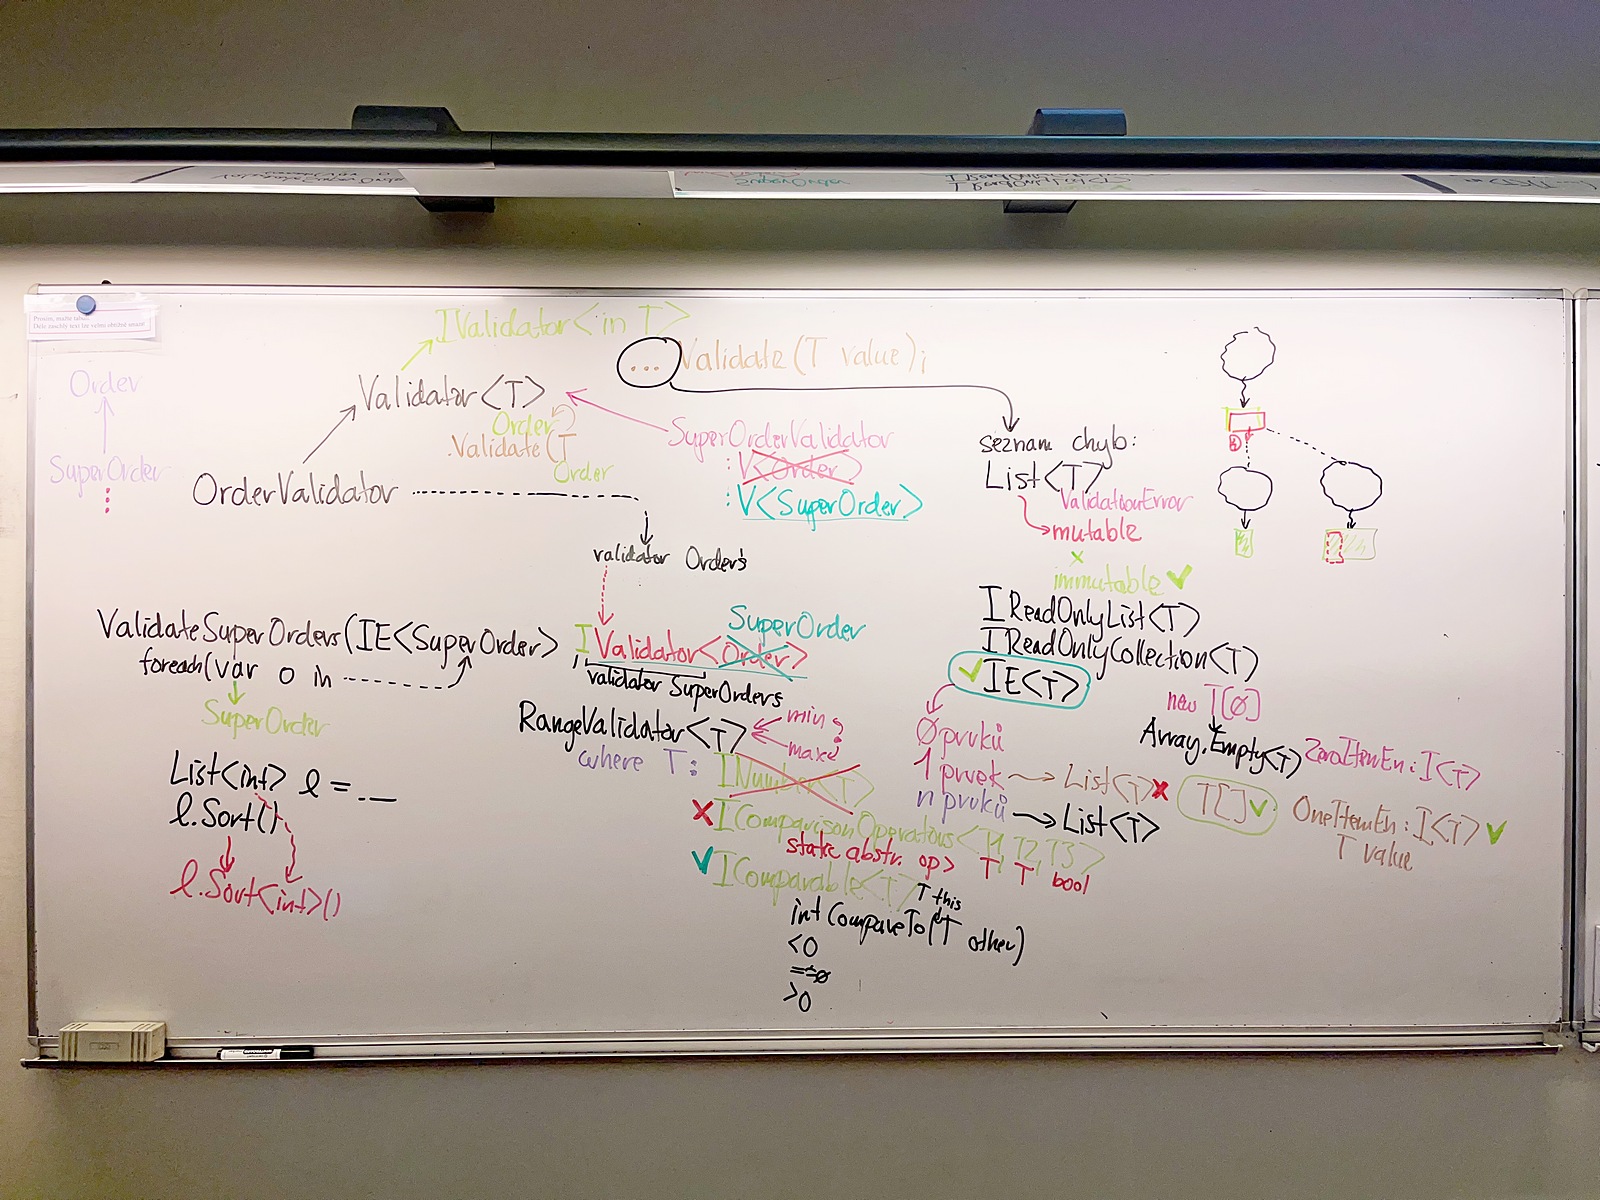 Order
SuperOrder
IValidator<in T>
... Validate(T value);
Validator<T>
Order
.Validate(T
Order
OrderValidator
SuperOrderValidator
: V<Order>
: V<SuperOrder>
validator Orderů
ValidateSuperOrders(IE<SuperOrder> , IValidator<Order>
SuperOrder
foreach(var o in
SuperOrder
validator SuperOrderů
List<int> l =
l.Sort()
l.Sort<int>()
RangeValidator<T>
min
max
where T:
INumber<T>
IComparisonOperators<T1, T2, T3>
static abstr. op> T T bool
IComparable<T>
T this
int CompareTo(T other)
<0
==0
>0
seznam chyb:
List<T>
ValidationError
mutable
x
immutable
IReadOnlyList<T>
IReadOnlyCollection<T>
IE<T>
0 prvků
1 prvek
n prvků
List<T>
List<T>
new T[0]
Array.Empty<T>
ZeroItemEn: I<T>
T[]
OneItemEn: I<T>
T value